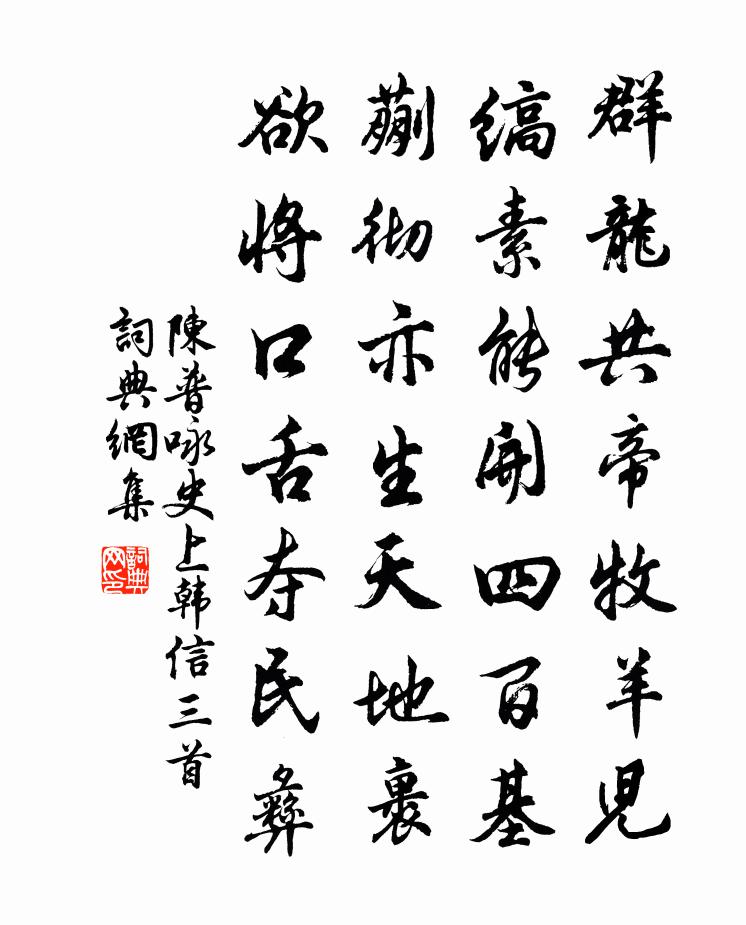 群龍共帝牧羊兒
縞素能開四百基
蒯彻亦生天地裏
欲將口舌夺民彝
陳普咏史上韩信三首
詞典網集
詞典
网印